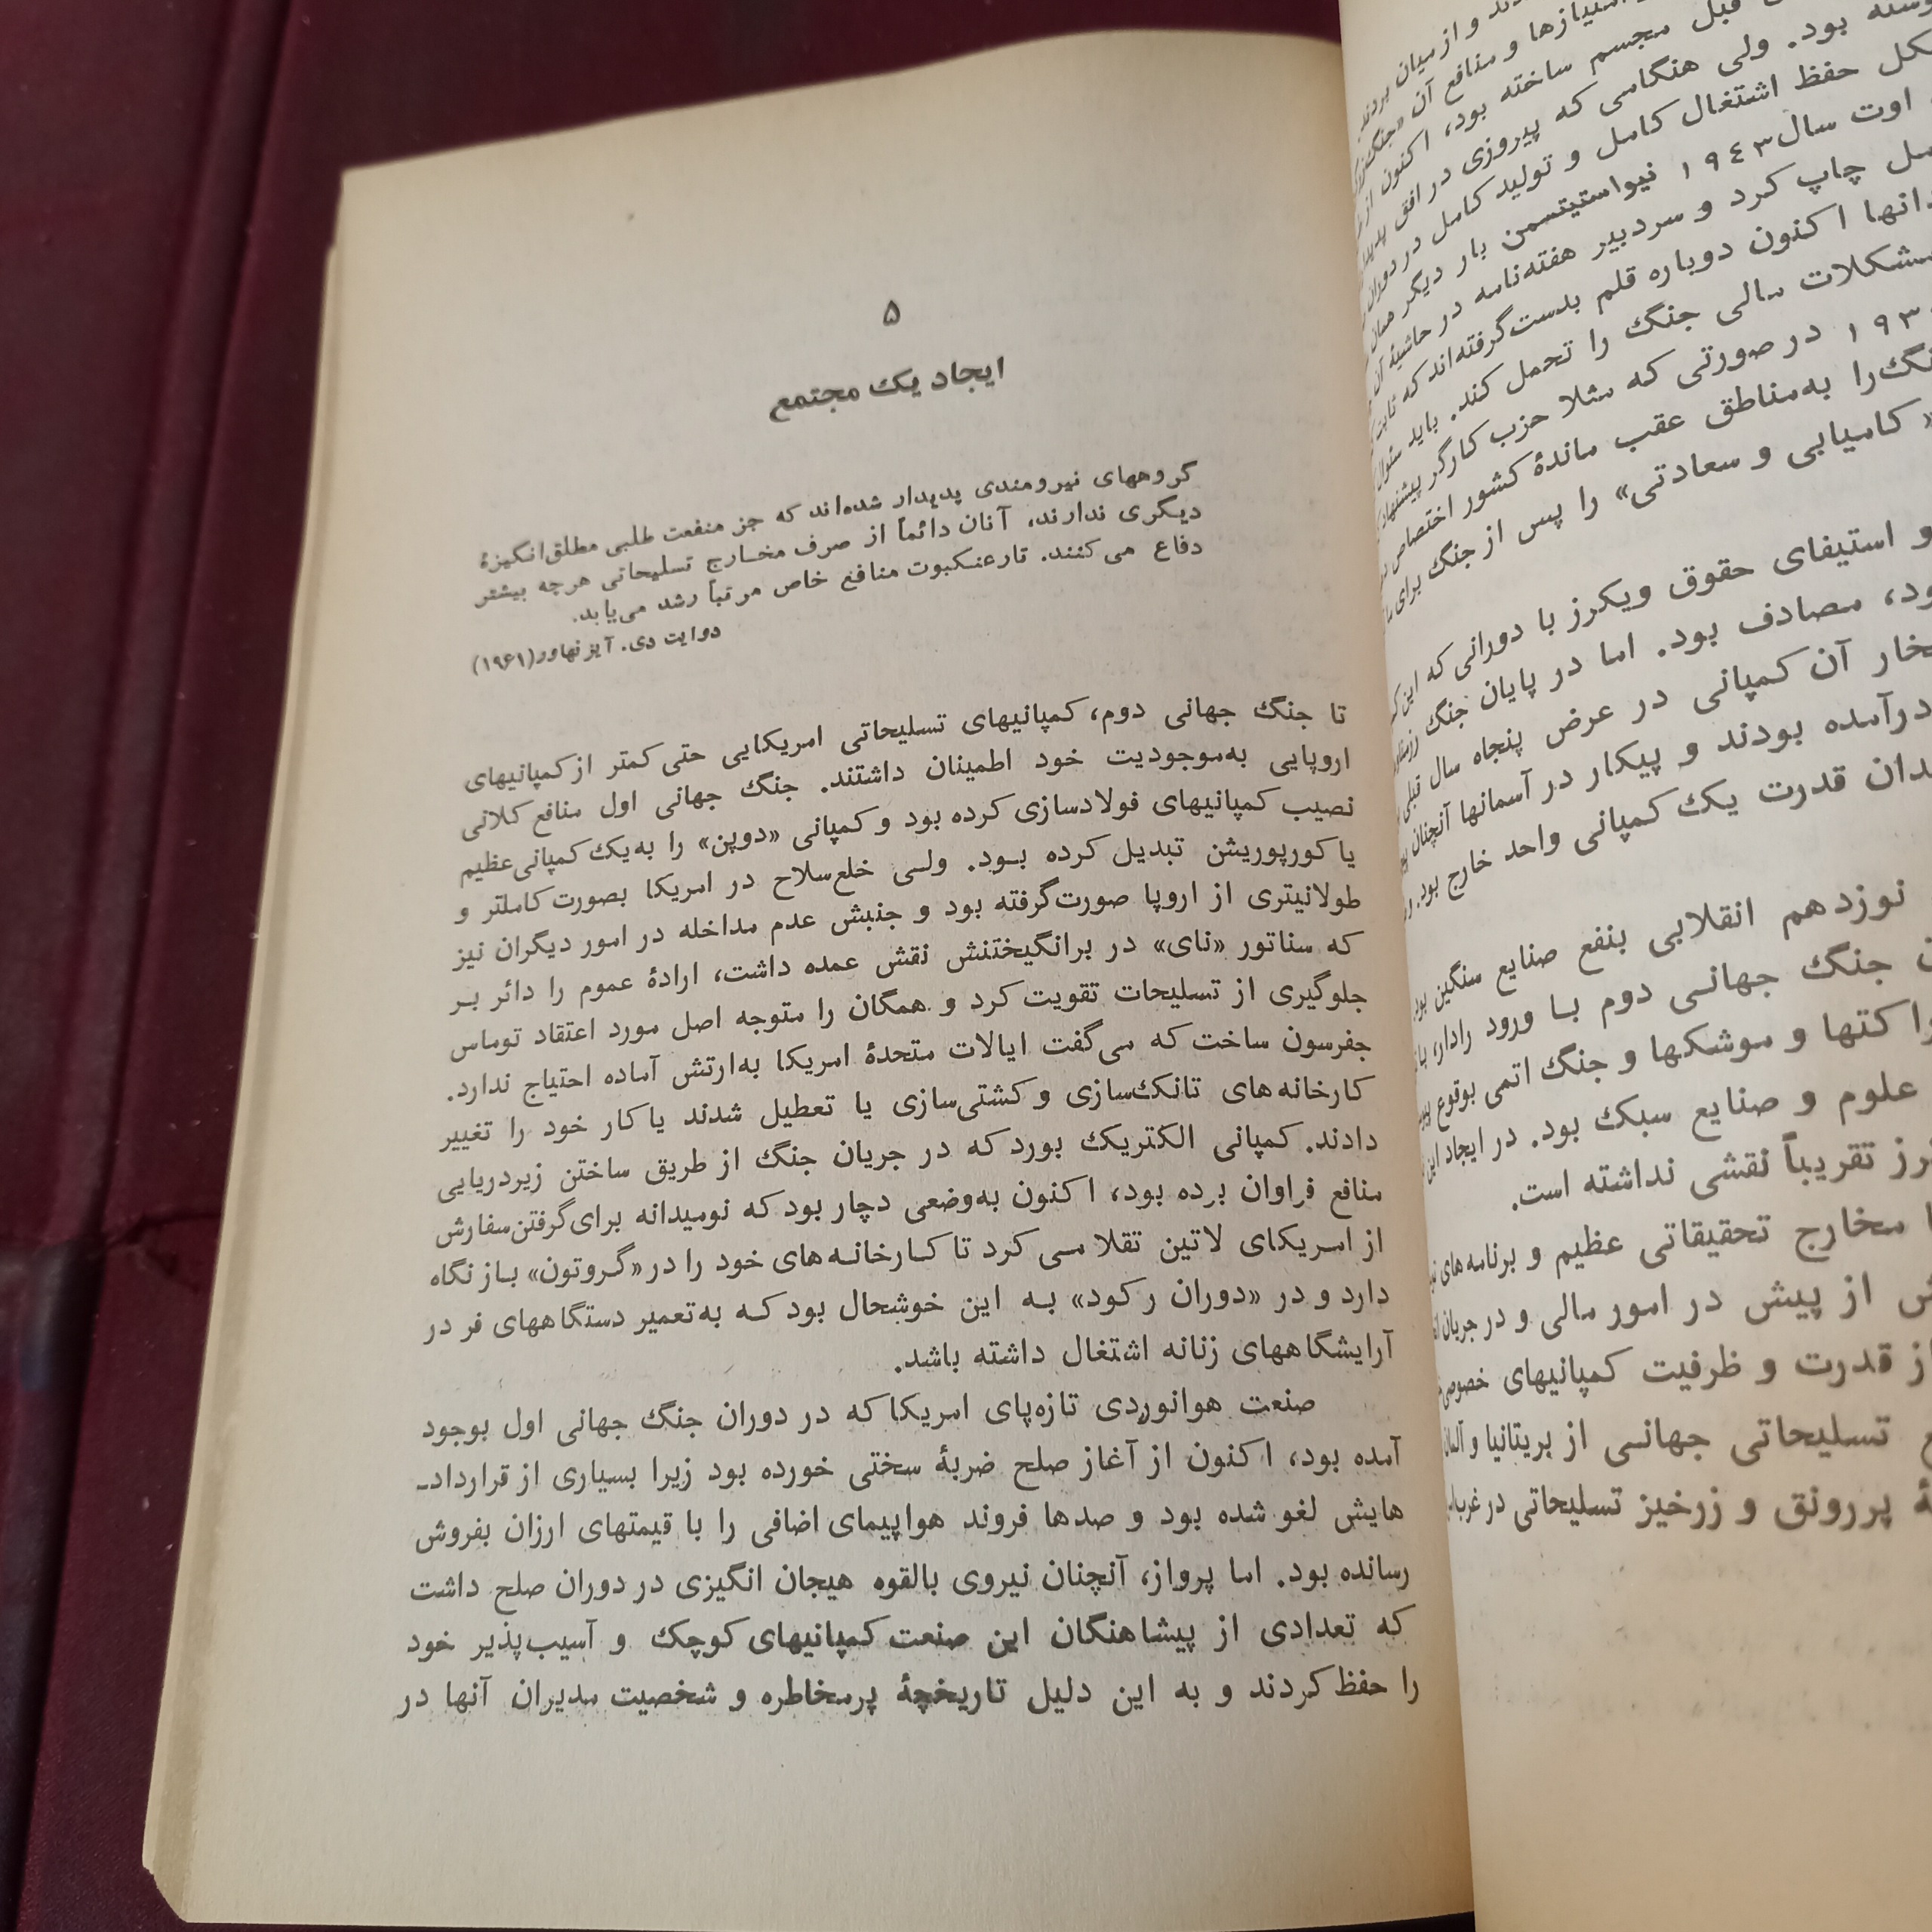 و از میان بردند
امتیازها و منافع آن «جنگ
قبل مجسم ساخته بود، اکنون از
بود. ولی هنگامی که پیروزی در افق
حفظ اشتغال کامل و تولید کامل در دوران
اوت سال ۱۹۴۳ نیواستیتسمن بار دیگر همان
چاپ کرد و سردبیر هفته‌نامه در حاشیهٔ آن
اکنون دوباره قلم بدست گرفته‌اند که ثابت
مشکلات مالی جنگ را تحمل کند. باید سئوال
در صورتی که مثلا حزب کارگر پیشنهاد
را به‌مناطق عقب ماندهٔ کشور اختصاص
«کامیابی و سعادتی» را پس از جنگ برای
و استیفای حقوق ویکرز با دورانی که این
مصادف بود. اما در پایان جنگ
آن کمپانی در عرض پنجاه سال قبلی
درآمده بودند و پیکار در آسمانها آنچنان
قدرت یک کمپانی واحد خارج بود.
نوزدهم انقلابی بنفع صنایع سنگین
جنگ جهانی دوم با ورود رادار،
و موشکها و جنگ اتمی بوقوع
علوم و صنایع سبک بود. در ایجاد این
تقریباً نقشی نداشته است.
مخارج تحقیقاتی عظیم و برنامه‌های
از پیش در امور مالی و در جریان
از قدرت و ظرفیت کمپانیهای خصوصی
تسلیحاتی جهانی از بریتانیا و آلمان
پررونق و زرخیز تسلیحاتی در غرب
۵
ایجاد یک مجتمع
گروههای نیرومندی پدیدار شده‌اند که جز منفعت طلبی مطلق‌انگیزهٔ
دیگری ندارند، آنان دائماً از صرف مخارج تسلیحاتی هرچه بیشتر
دفاع می‌کنند. تارعنکبوت منافع خاص مرتباً رشد می‌یابد.
دوایت دی. آیزنهاور(۱۹۶۱)
تا جنگ جهانی دوم، کمپانیهای تسلیحاتی امریکایی حتی کمتر از کمپانیهای
اروپایی به‌موجودیت خود اطمینان داشتند. جنگ جهانی اول منافع کلانی
نصیب کمپانیهای فولادسازی کرده بود و کمپانی «دوپن» را به‌یک کمپانی‌عظیم
یا کورپوریشن تبدیل کرده بود. ولی خلع‌سلاح در امریکا بصورت کاملتر و
طولانیتری از اروپا صورت‌گرفته بود و جنبش عدم مداخله در امور دیگران نیز
که سناتور «نای» در برانگیختنش نقش عمده داشت، ارادهٔ عموم را دائر بر
جلوگیری از تسلیحات تقویت کرد و همگان را متوجه اصل مورد اعتقاد توماس
جفرسون ساخت که می‌گفت ایالات متحدهٔ امریکا به‌ارتش آماده احتیاج ندارد.
کارخانه‌های تانک‌سازی و کشتی‌سازی یا تعطیل شدند یا کار خود را تغییر
دادند. کمپانی الکتریک بورد که در جریان جنگ از طریق ساختن زیردریایی
منافع فراوان برده بود، اکنون به‌وضعی دچار بود که نومیدانه برای‌گرفتن‌سفارش
از امریکای لاتین تقلا می کرد تا کارخانه‌های خود را در «گروتون» باز نگاه
دارد و در «دوران رکود» به این خوشحال بود که به‌تعمیر دستگاههای فر در
آرایشگاههای زنانه اشتغال داشته باشد.
صنعت هوانوردی تازه‌پای امریکا که در دوران جنگ جهانی اول بوجود
آمده بود، اکنون از آغاز صلح ضربهٔ سختی خورده بود زیرا بسیاری از قرارداد-
هایش لغو شده بود و صدها فروند هواپیمای اضافی را با قیمتهای ارزان بفروش
رسانده بود. اما پرواز، آنچنان نیروی بالقوه هیجان انگیزی در دوران صلح داشت
که تعدادی از پیشاهنگان این صنعت کمپانیهای کوچک و آسیب‌پذیر خود
را حفظ کردند و به این دلیل تاریخچهٔ پرمخاطره و شخصیت مدیران آنها در